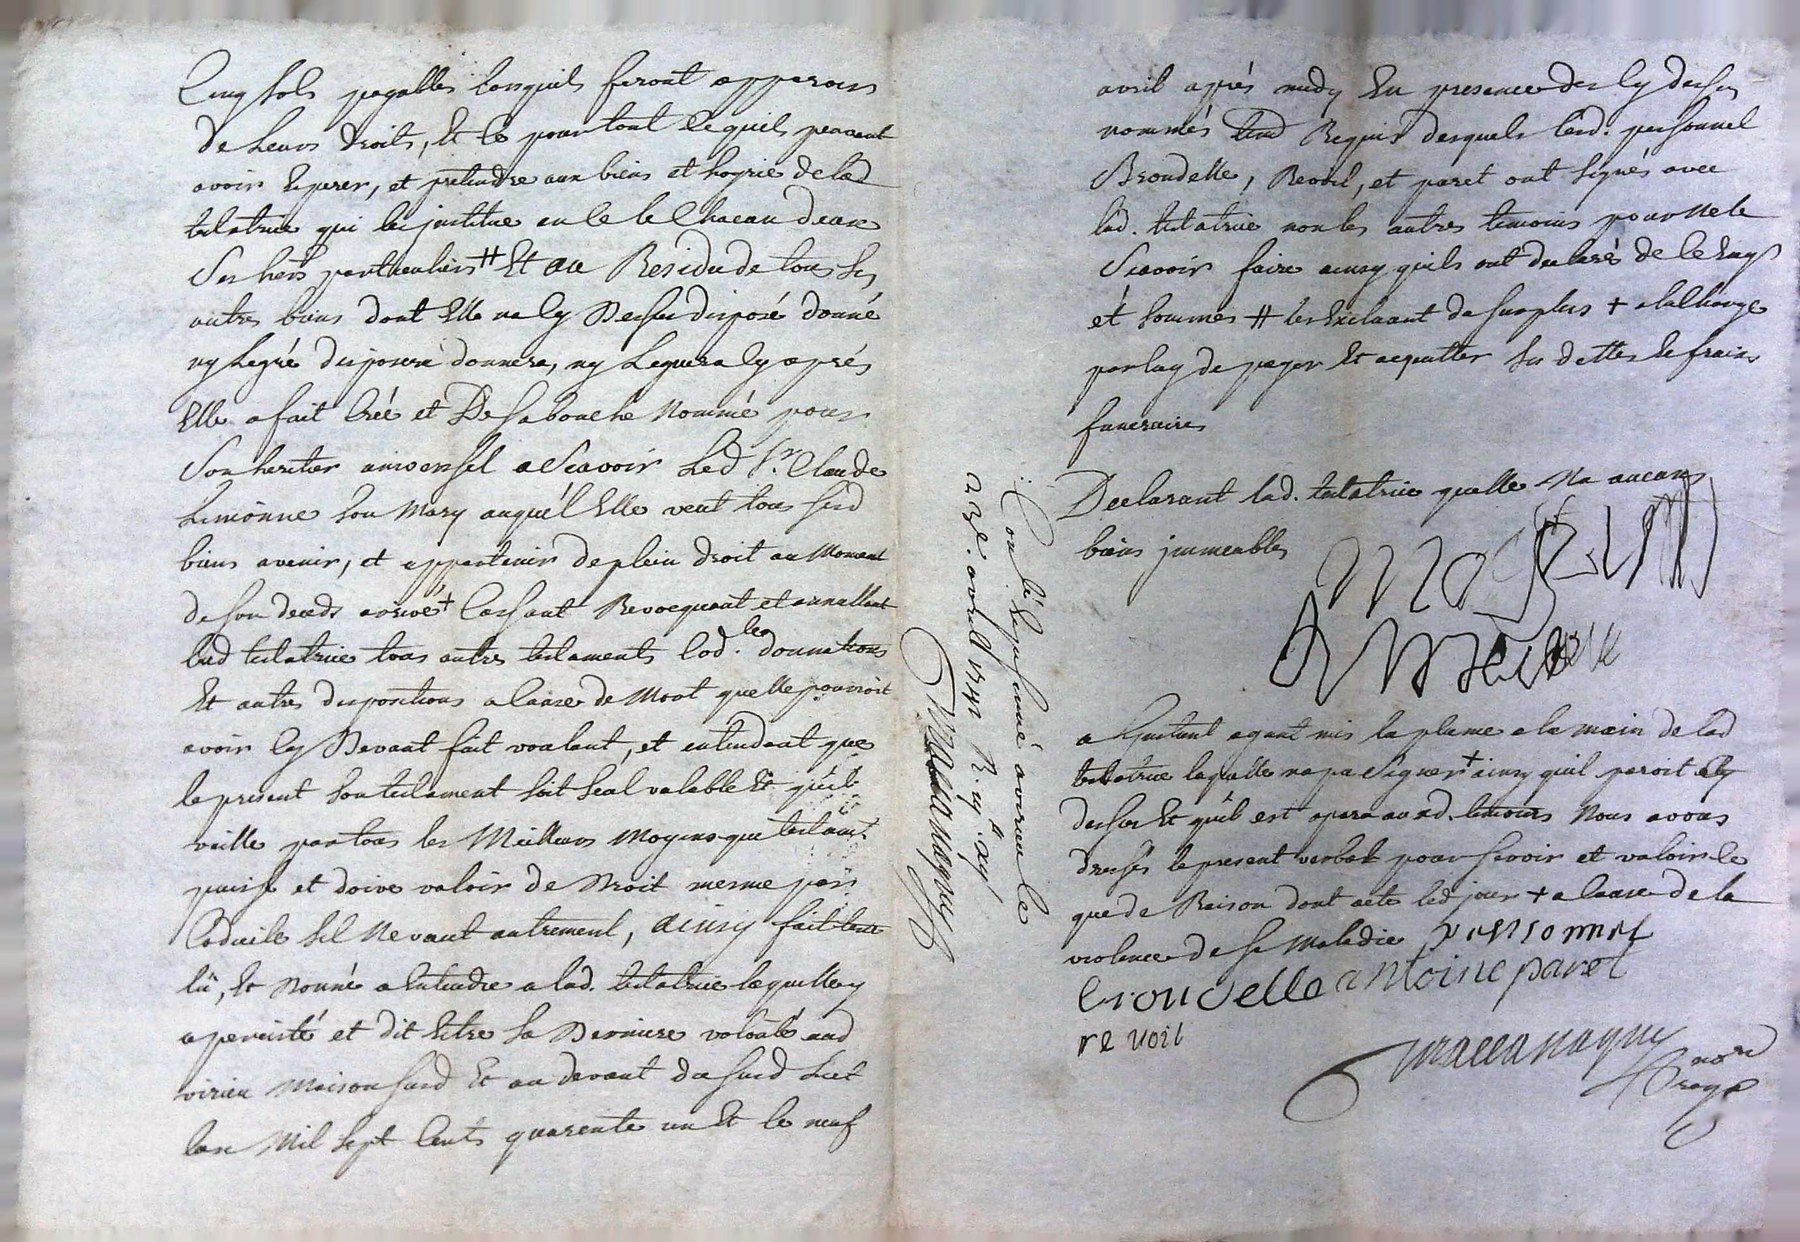 Cinq sols payables lorsquils feront apparoir
de leurs droits, Et Ce pour tout ce quils peuvent
avoir Esperer, et pretendre aux biens et hoyrie de lad
testatrice qui les institue en Ce Chacun deux
Ses hers particuliers # Et au Residu de tous Ses
autres biens dont Elle na Cy Dessus disposé donné
ny Legué disposera donnera, ny Leguera Cy aprés
Elle a fait Créé et De sa bouche Nommé pour
Son heritier universel a Scavoir Led Sr. Claude
Limonne Son Mary auquel Elle veut tous sesd
biens avenir, et appartenir de plein droit au Moment
de son deceds arrivé + Cassant Revocquant et annullant
lad testatrice tous autres testaments Cod.les donnations
Et autres dispositions a Cause de Mort quelle pourroit
avoir Cy Devant fait voulant, et entendant que
le present son testament soit seul valable Et qu'il
vaille par tous les Meilleurs Moyens que testamt.
puisse et doive valoir de Droit mesme par
Codicile sil Ne vaut autrement, ainsy fait
lû, Et Donné a Entendre a lad. testatrice laquelle y
a percisté et dit Estre Sa Derniere volonté aud
virieu Maison susd Et au devant du susd Lict
lan Mil Sept Cents quarente un Et le neuf
Controllé Et Insinué a virieu le
avril 1741 R.
Maccanaguy
avril aprés midy En presence des Cy dessus
nommés Requis desquels lesd. personnel
Brondelle, Revoil, et paret ont signés avec
lad. testatrice non les autres temoins pour Ne le
Scavoir faire ainsy quils ont declaré de Ce Enquis
et sommés # les Excluant du surplus + a la Charge
par luy de payer Et acquitter Ses dettes Et fraix
funeraires
Declarant lad. testatrice quelle Na aucuns
biens immeubles
a Linstant ayant mis la plume a la main de lad
testatrice laquelle na pu Signer + ainsy quil paroit Cy
dessus Et qu'il est apparu ausd. temoins Nous avons
dressés le present verbal pour servir et valoir Ce
que de Raison dont acte led jour + a Cause de la
violence de sa Maladie personnel
brondelle antoine paret
revoil
Maccanaguy
nore
Royal